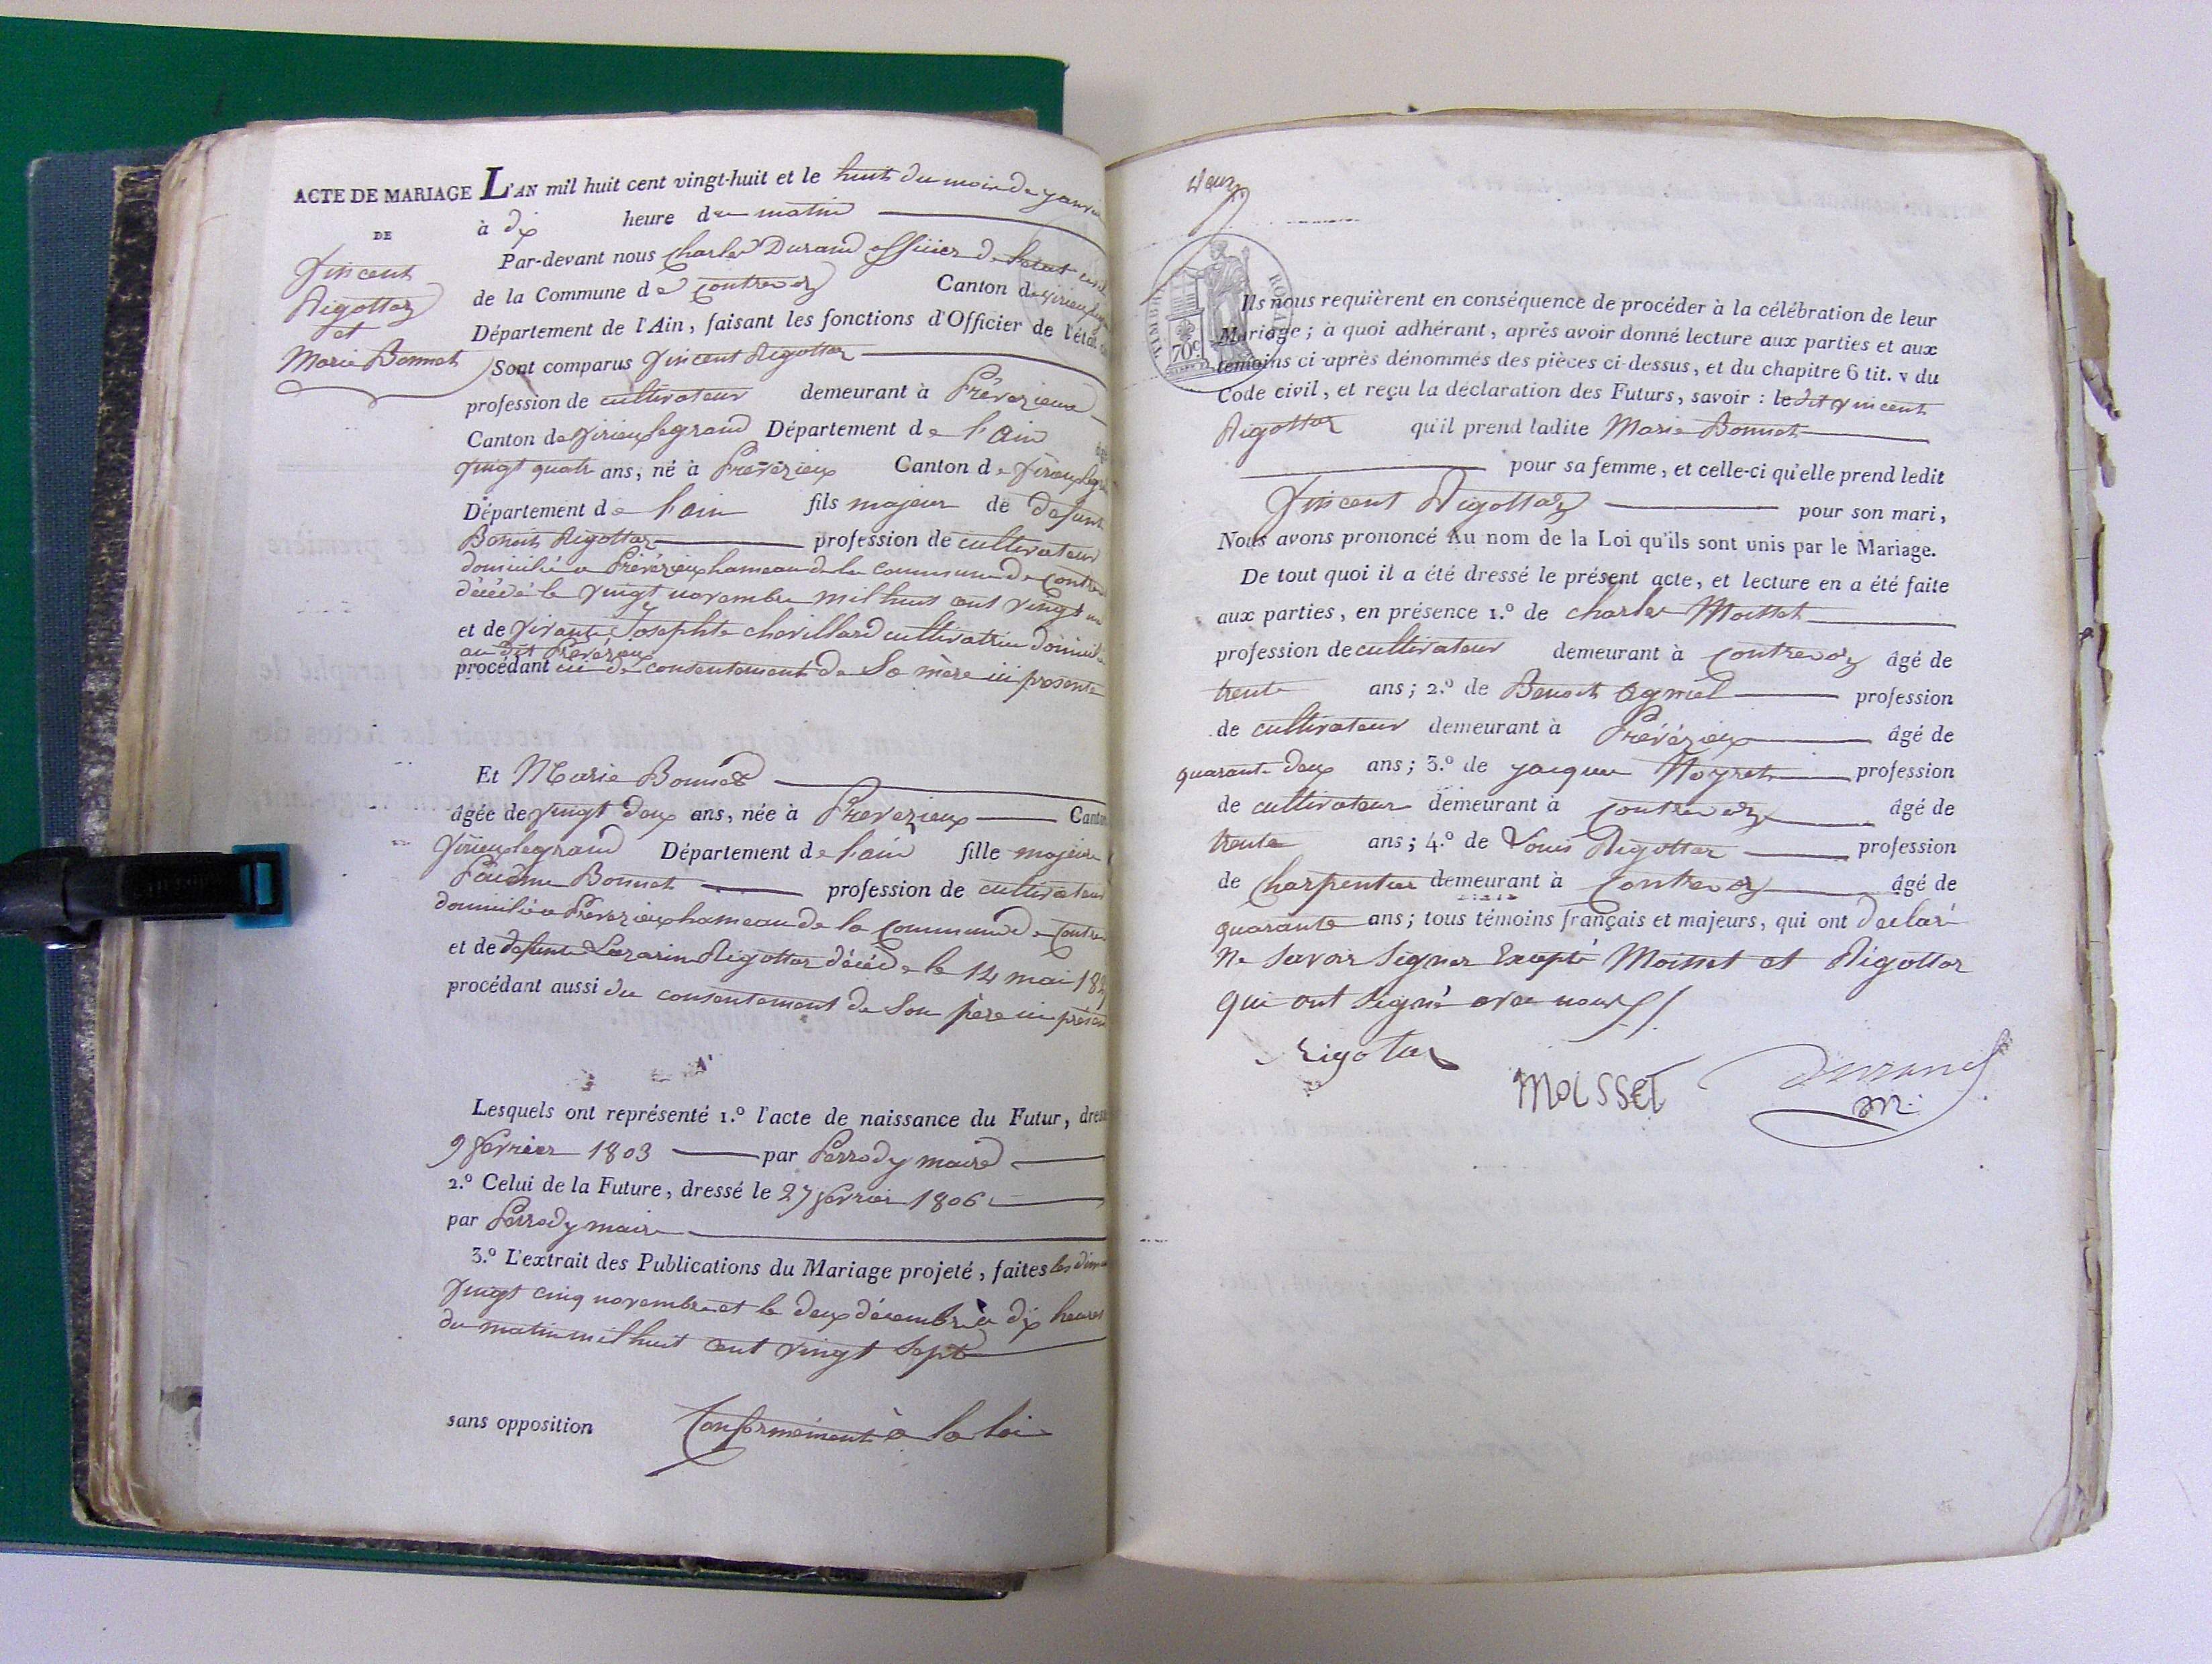 ACTE DE MARIAGE
DE
Vincent
Rigottaz
et
Marie Bonnet
L'AN mil huit cent vingt-huit et le huit du mois de janvier
à dix heure du matin
Par-devant nous Charles Durand officier de l'état civil
de la Commune de Contrevoz Canton de Virieu
Département de l'Ain, faisant les fonctions d'Officier de l'état
Sont comparus Vincent Rigottaz
profession de cultivateur demeurant à Prévézieux
Canton de Virieu legrand Département de l'ain
vingt quatre ans, né à Prévézieux Canton de
Département de l'ain fils majeur de defunt
Benoit Rigottaz profession de cultivateur
domicilié a Prévézieux hameau de la commune de
décédé le vingt novembre mil huit cent vingt
et de Josephte chevillard cultivatrice
au dit Prévézieux
procédant ici du consentement de Sa mère ici présente
Et Marie Bonnet
âgée de vingt deux ans, née à Prevezieux Canton
Virieu legrand Département de l'ain fille majeure
Bonnet profession de cultivateur
domicilié a Prevezieux hameau de la commune de
et de defunte Rigottaz décédée le 14 mai
procédant aussi du consentement de Son père ici
Lesquels ont représenté 1.° l'acte de naissance du Futur,
9 février 1803 par Perrody maire
2.° Celui de la Future, dressé le 27 février 1806
par Perrody maire
3.° L'extrait des Publications du Mariage projeté, faites les
vingt cinq novembre et le deux décembre à dix heures
du matin mil huit cent vingt sept
sans opposition Conformément à la loi
TIMBRE ROYAL
70c
Ils nous requièrent en conséquence de procéder à la célébration de leur
Mariage; à quoi adhérant, après avoir donné lecture aux parties et aux
témoins ci-après dénommés des pièces ci-dessus, et du chapitre 6 tit. v du
Code civil, et reçu la déclaration des Futurs, savoir : ledit Vincent
Rigottaz qu'il prend ladite Marie Bonnet
pour sa femme, et celle-ci qu'elle prend ledit
Vincent Rigottaz pour son mari,
Nous avons prononcé Au nom de la Loi qu'ils sont unis par le Mariage.
De tout quoi il a été dressé le présent acte, et lecture en a été faite
aux parties, en présence 1.° de charles Moisset
profession de cultivateur demeurant à Contrevoz âgé de
trente ans; 2.° de Benoit profession
de cultivateur demeurant à Prévézieux âgé de
quarante deux ans; 3.° de jacques profession
de cultivateur demeurant à Contrevoz âgé de
trente ans; 4.° de Louis Rigottaz profession
de Charpentier demeurant à Contrevoz âgé de
quarante ans; tous témoins français et majeurs, qui ont declaré
Ne Savoir Signer Excepté Moisset et Rigottaz
qui ont Signé avec nous
Rigotaz
MOISSET
Durand
m.